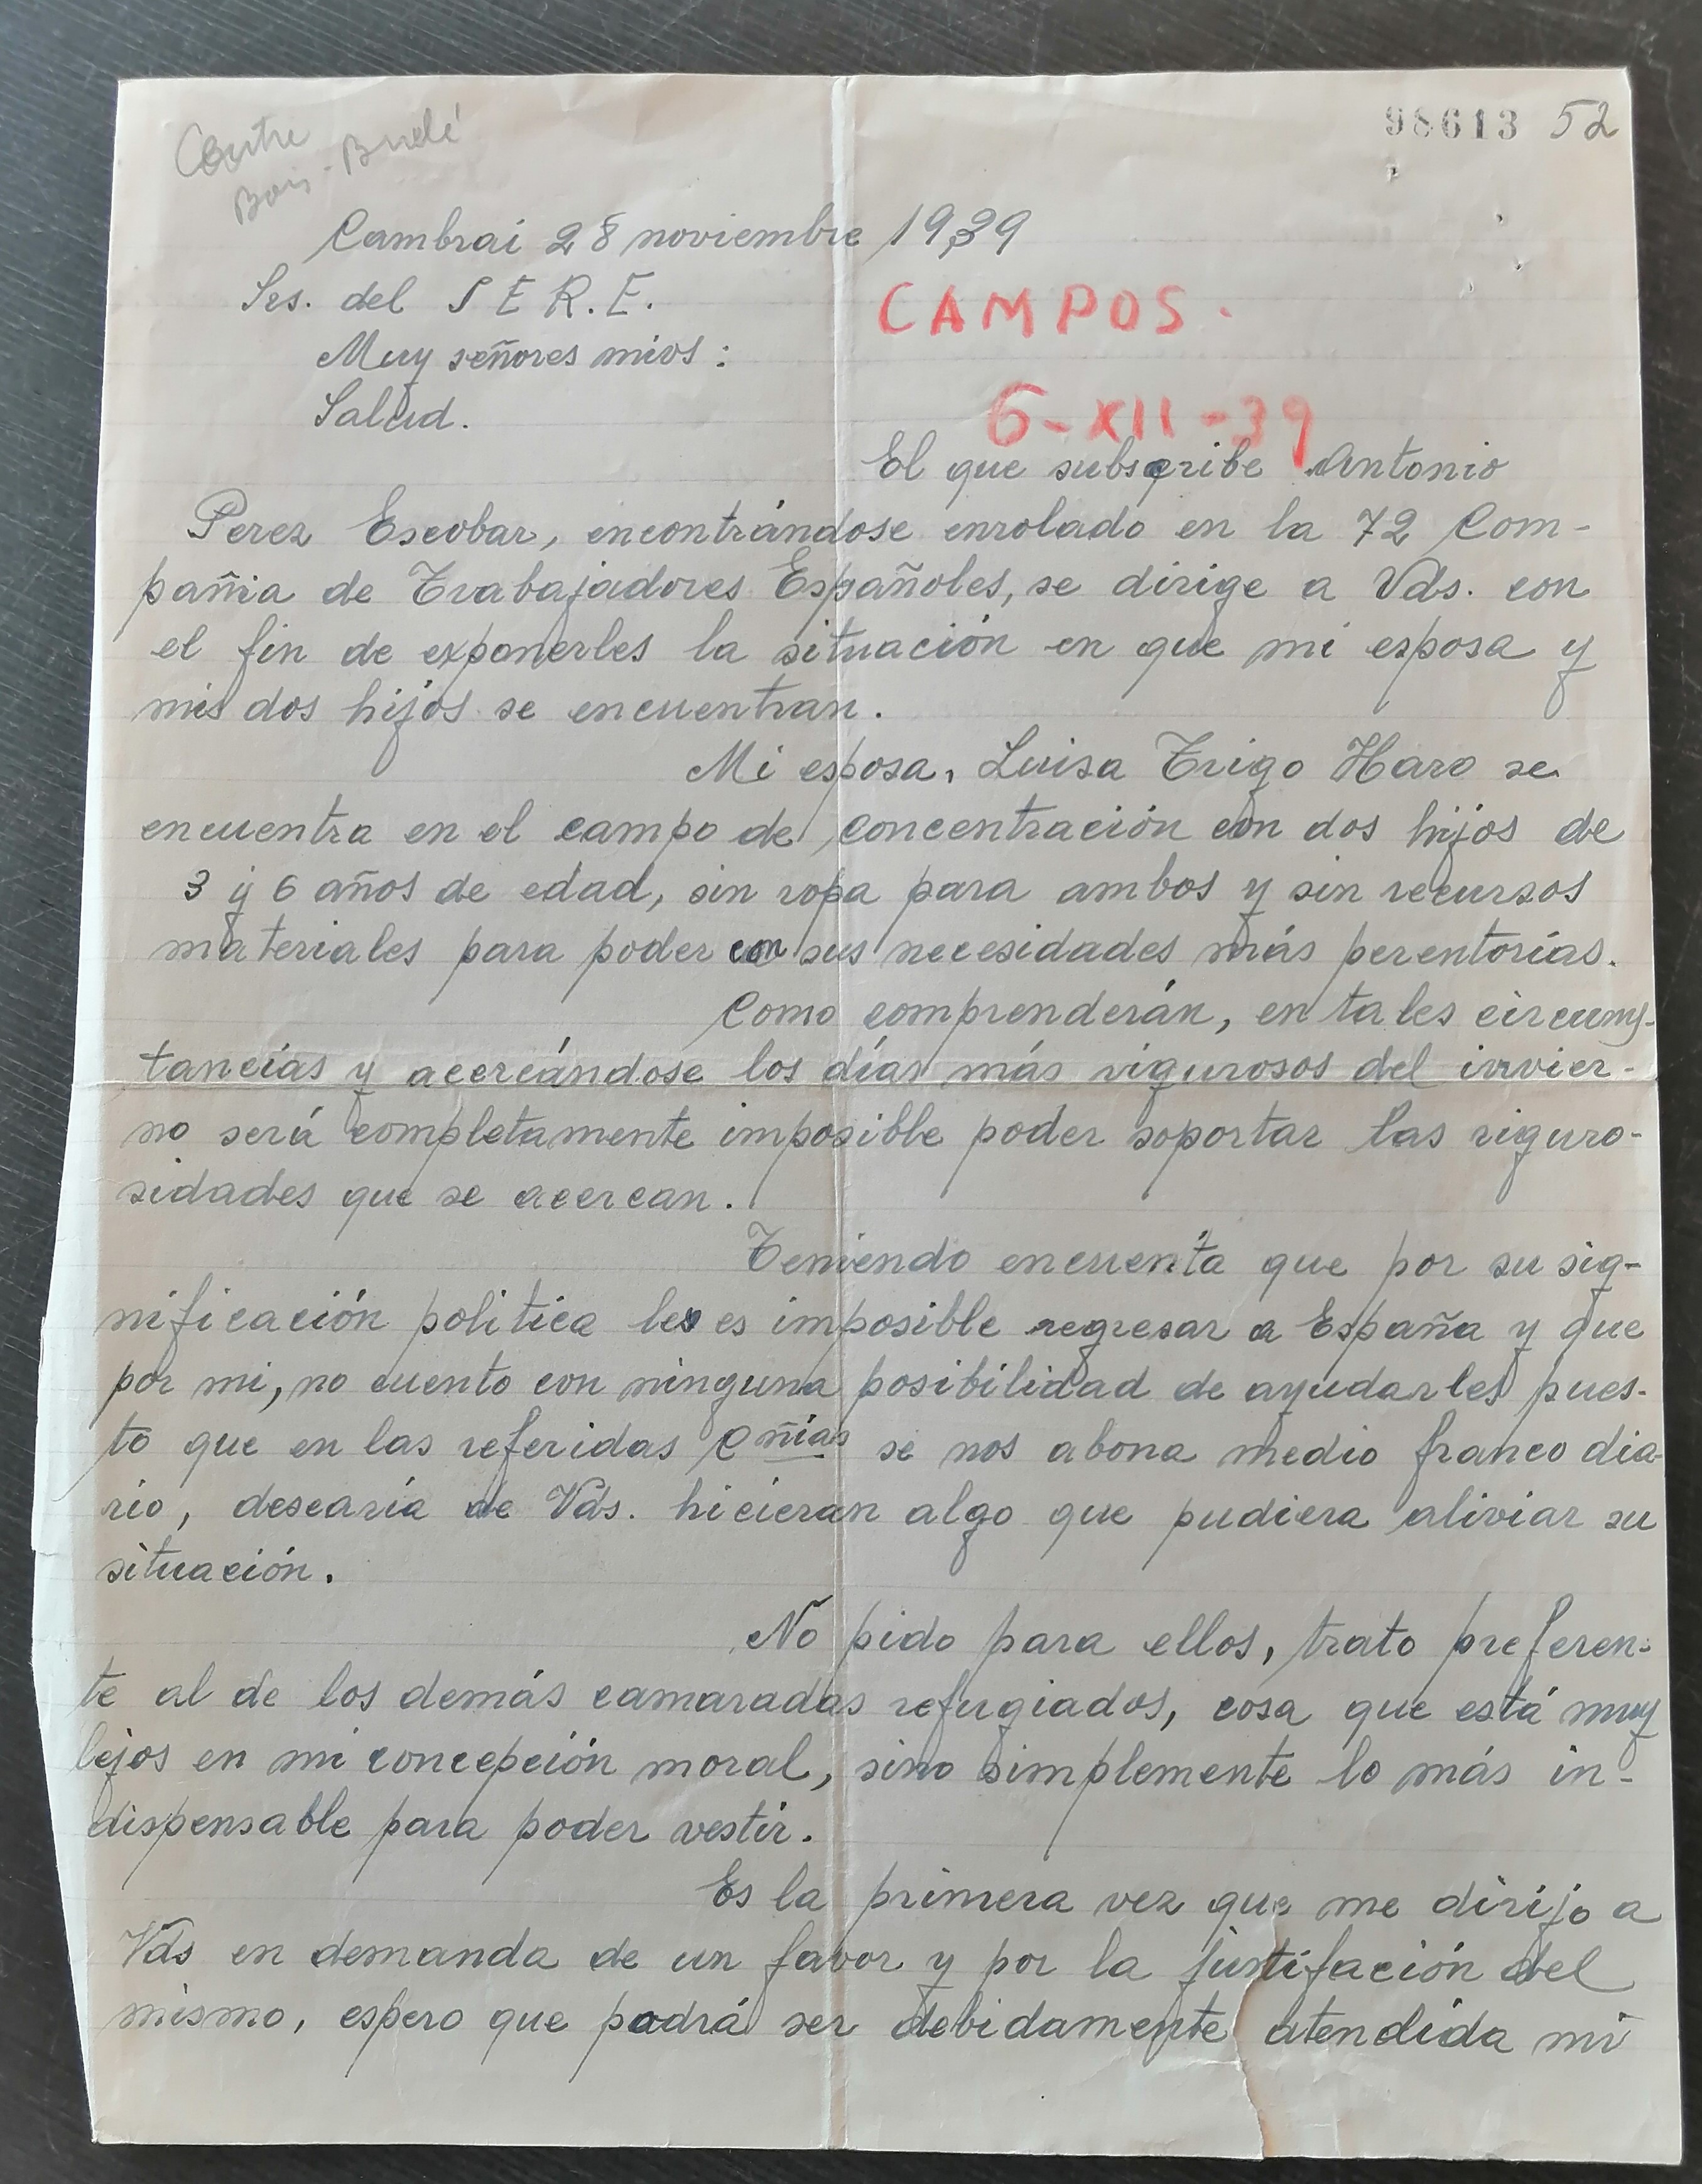 98613 52
Centre
Bois-Brulé
Cambrai 28 noviembre 1939
Srs. del S E R. E.
CAMPOS.
Muy señores mios:
6-XII-39
Salud.
El que subscribe Antonio
Perez Escobar, encontrándose enrolado en la 72 Com-
pañia de Trabajadores Españoles, se dirige a Vds. con
el fin de exponerles la situación en que mi esposa y
mis dos hijos se encuentran.
Mi esposa, Luisa Trigo Haro se
encuentra en el campo de concentración con dos hijos de
3 y 6 años de edad, sin ropa para ambos y sin recursos
materiales para poder con sus necesidades más perentorías.
Como comprenderán, en tales circuns-
tancías y acercándose los días más rigurosos del invier-
no será completamente imposible poder soportar las riguro-
sidades que se acercan.
Teniendo encuenta que por su sig-
nificación politica les es imposible regresar a España y que
por mi, no cuento con ninguna posibilidad de ayudarles pues-
to que en las referidas Cñias se nos abona medio franco dia-
rio, desearía de Vds. hicieran algo que pudiera aliviar su
situación.
No pido para ellos, trato preferen-
te al de los demás camaradas refugiados, cosa que está muy
lejos en mi concepción moral, sino simplemente lo más in-
dispensable para poder vestir.
Es la primera vez que me dirijo a
Vds en demanda de un favor y por la justifación del
mismo, espero que podrá ser debidamente atendida mi